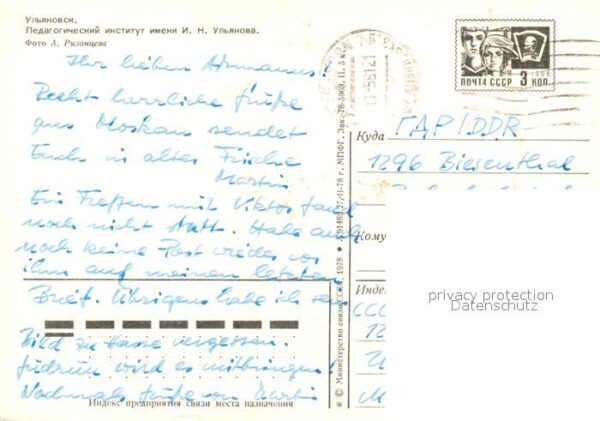 Ульяновск.
Педагогический институт имени И. Н. Ульянова.
Фото А. Рязанцева
Ihr lieben
Recht herzliche Grüße
aus Moskau sendet
Euch in alter Frische
Martin
Ein Treffen mit Viktor fand
noch nicht statt. Habe auch
noch keine Post wieder von
ihm auf meinen letzten
Brief. Übrigens habe ich sein
Bild zu Hause vergessen.
Gudrun wird es mitbringen!
Nochmals Grüße von Martin
Индекс предприятия связи места назначения
* © Министерство связи СССР, 1978
МПФГ.
ПОЧТА СССР 3 КОП
1968
Куда ГДР/DDR
1296 Biesenthal
Кому
Индекс
privacy protection
Datenschutz